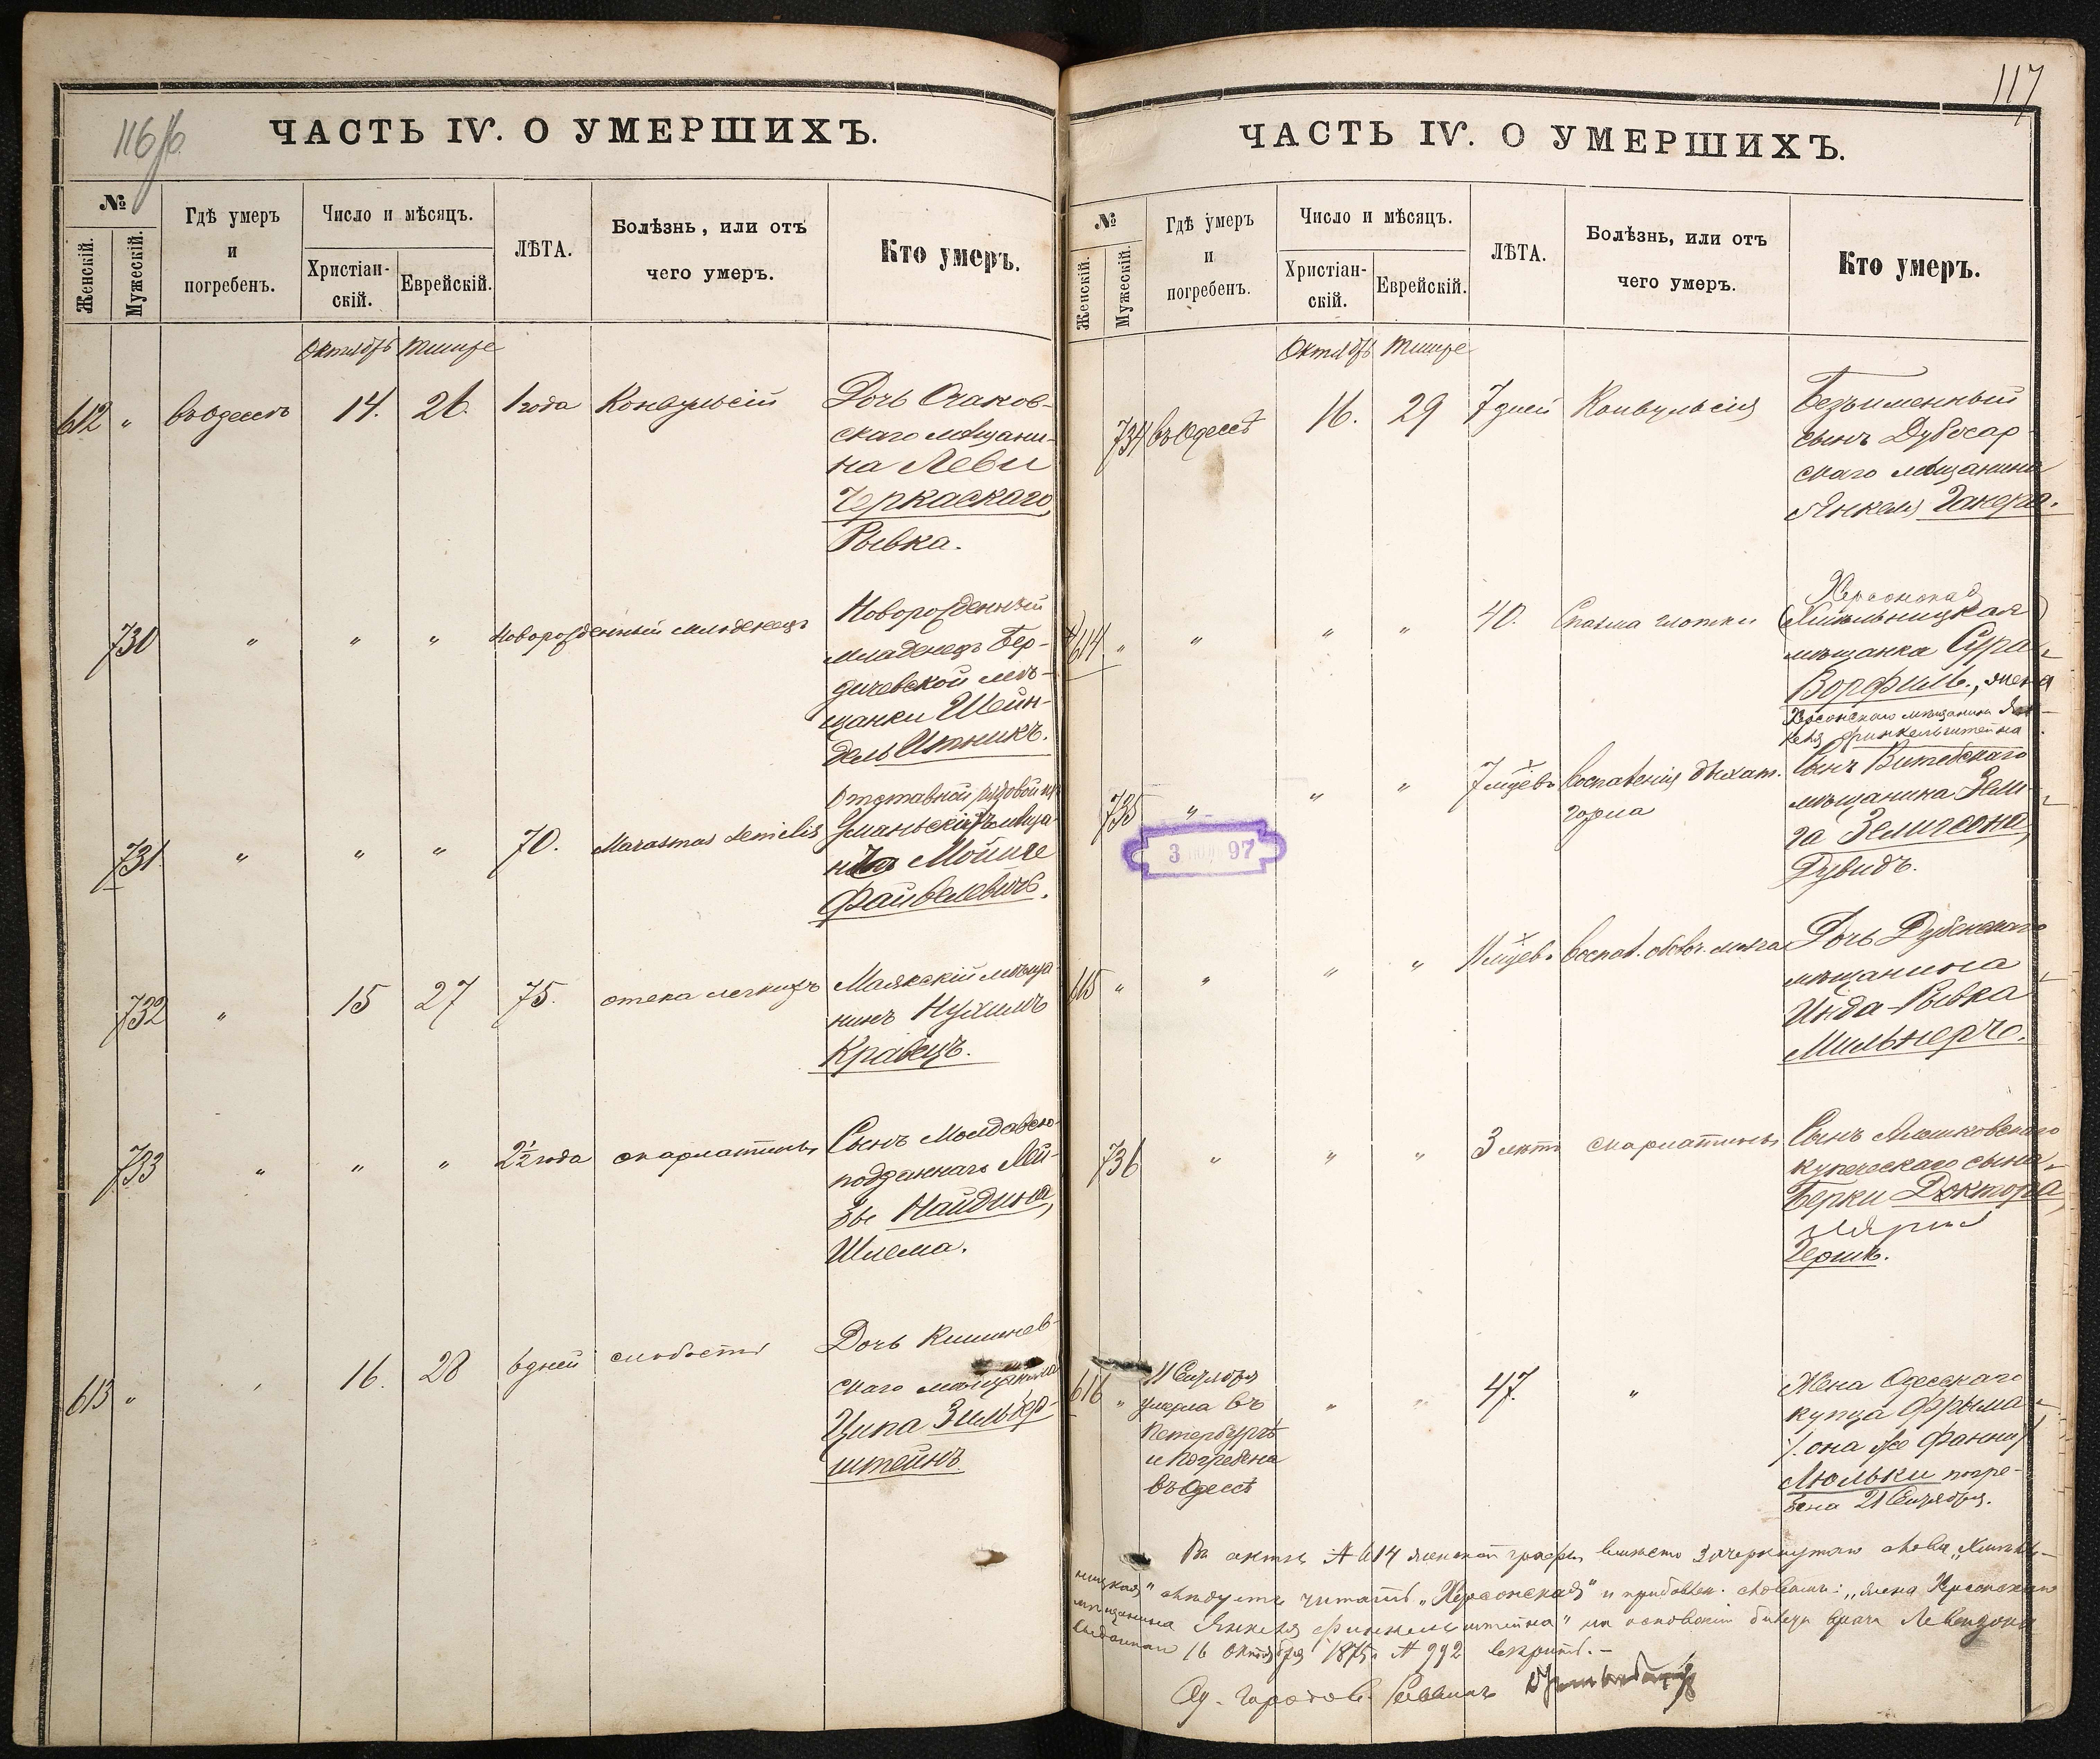 116/б
ЧАСТЬ IV. О УМЕРШИХЪ.
№
Женскій.
Мужескій.
Гдѣ умеръ
и
погребенъ.
Число и мѣсяцъ.
Христіан-
скій.
Еврейскій.
ЛѢТА.
Болѣзнь, или отъ
чего умеръ.
Кто умеръ.
Октябрь Тишре
612 " въ Одессѣ 14. 26. 1 года Конвульсій Дочь Очаков-
скаго мѣщани-
на Леви
Черкаскаго,
Рывка.
730 " " " Новорожденный младенецъ Новорожденный
младенецъ Бер-
дичевской мѣ-
щанки Шейн-
дель Итникъ.
731. " " " 70. Marasmus senilis Отставной рядовой
Уманьскій мѣща-
Мойше
Файвелевичъ.
732 " 15 27 75. отека легкихъ Маякскій мѣща-
нинъ Нухимъ
Кравецъ.
733 " " " 2½ года скарлатины Сынъ Молдавско-
подданнаго Лей-
зы Найдина,
Шлема.
613 " " 16. 28 6 дней слабости Дочь Кишинев-
скаго мѣщанина
Ципа Зильбер-
штейнъ.
117
ЧАСТЬ IV. О УМЕРШИХЪ.
№
Женскій.
Мужескій.
Гдѣ умеръ
и
погребенъ.
Число и мѣсяцъ.
Христіан-
скій.
Еврейскій.
ЛѢТА.
Болѣзнь, или отъ
чего умеръ.
Кто умеръ.
Октябрь Тишре
734 въ Одессѣ 16. 29 7 дней Конвульсія Безъименный
сынъ Дубосар-
скаго мѣщанина
Янкеля Гакера.
Херсонская
614 " " " " 40. Спазма глотки (Хмѣльницкая)
мѣщанка Сура
Ворфиль, жена
Херсонскаго мѣщанина Ян-
келя Финкельштейна.
735 " " " 7 мѣсяцев. Воспаленія дыхат. Сынъ Витебскаго
горла мѣщанина Зели-
га Зелигсона,
Дувидъ.
3 97
615 " " " " 11 мѣсяцев. Воспал. оболоч. мозга Дочь Дубенскаго
мѣщанина
Инда-Рывка
Мильнеръ.
736 " " " 3 лѣтъ скарлатины Сынъ Алешковскаго
купеческаго сына
Берки Доктора,
Гершъ.
616 " 11 Сентября " " 47. " Жена Одесскаго
умерла въ купца Фрыма
Петербургѣ /. она же Фанни ./
и погребена Люльки погре-
въ Одессѣ бена 21 Сентября.
Въ актѣ № 614 женской графы вмѣсто зачеркнутаго слова „Хмѣль-
ницкая" слѣдуетъ читать „Херсонская" и прибавлен. словамъ: „жена Херсонскаго
мѣщанина Янкеля Финкельштейна" на основаніи билета врача Левензона
выданнаго 16 Октября 1875 г. № 992 вѣрить. –
Од. Городов. Раввинъ